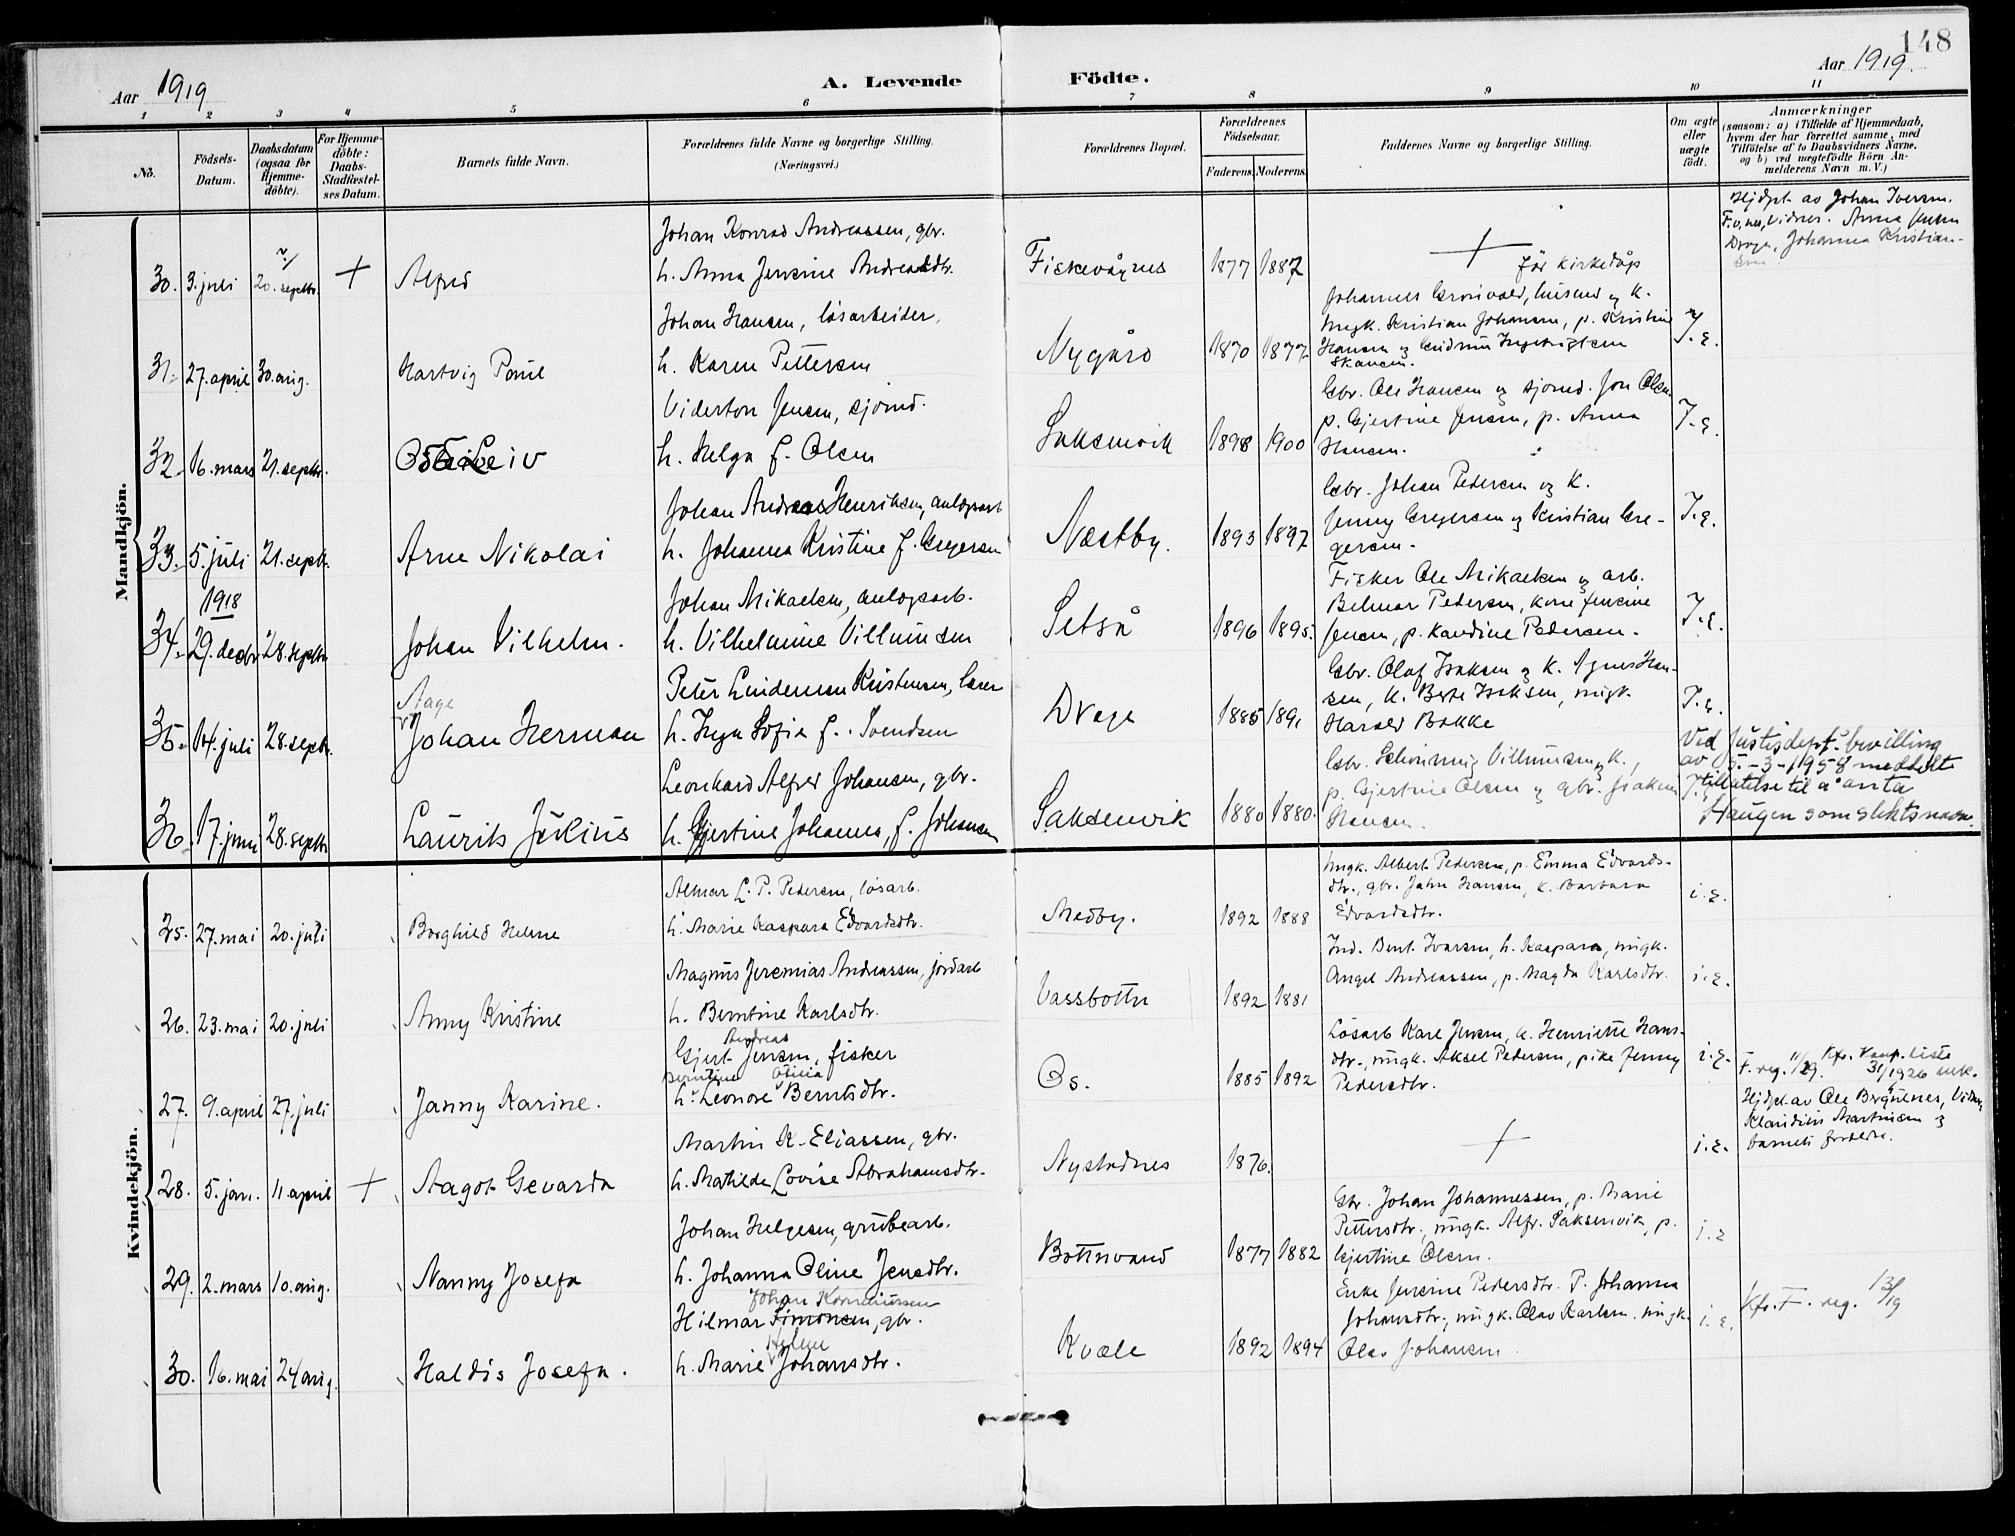 148
Aar 1919
A. Levende Födte.
Aar 1919.
1 2 3 4 5 6 7 8 9 10 11
No.
Födsels-Datum.
Daabsdatum (ogsaa för Hjemme-döbte).
For Hjemme-döbte: Daabs-Stadfæstel-ses Datum.
Barnets fulde Navn.
Forældrenes fulde Navne og borgerlige Stilling.
(Næringsvei.)
Forældrenes Bopæl.
Forældrenes Födselsaar.
Faderens. Moderens.
Faddernes Navne og borgerlige Stilling.
Om ægte eller uægte födt.
Anmærkninger
(sansom: a) i Tilfælde af Hjemmedaab,
hvem der har forrettet samme, med
Tilföielse af to Daabsvidners Navne,
og b) ved uægtefödte Börn An-
melderens Navn m. V.)
Mandkjön.
Johan Konrad Andreassen, gbr.
Hjdpt. av Johan Iversen.
Johanna Kristian-
30. 3. juli 20. septbr. + Alfred
h. Anna Jensine Andreasdtr.
Fiskevågnes 1877 1887
før kirkedåp
Johan Hansen, løsarbeider,
31. 27. april 30. aug. Hartvig Paul
h. Karen Pettersen
Nygård 1870 1877
ungk. Kristian Johansen, p. Kristine
Hansen
Skansen.
Viderton Jensen, sjømd.
32. 16. mars 21. septbr.
h. Helga f. Olsen
Saksenvik 1898 1900
Gbr. Ole Hansen og sjømd. Jon Olsen
p. Gjertine Jensen, p. Anna
Hansen.
Johan Andreas Henriksen, anlægsarb
33. 5. juli 21. septr. Arne Nikolai
h. Johanna Kristine f. Gregersen
Næstby. 1893 1897
Gbr. Johan Pedersen og K.
Jenny Gregersen og Kristian Gre-
gersen.
1918
Johan Mikaelsen, anlægsarb.
34. 29. decbr 28. septbr Johan Vilhelm.
h. Vilhelmine Villumsen
Setså 1896 1895.
Fisker Ole Mikaelsen og arb.
Belmar Pedersen, kone Jensine
Jensen, p. Kaudine Pedersen.
Peter Lindeman Kristensen, lærer
Aage
35. 14. juli 28. septr. Johan Herman
h. Inga Sofie f. Svendsen
Drage 1885 1891
Gbr. Olaf Isaksen og K. Agnes Han-
sen, K. Berte Isaksen, ungk.
Harald Bakke
Leonhard Alfred Johansen, gbr.
36. 17. juni 28. septbr Laurits Julius
h. Gjertine Johanna, f. Johansen
Saksenvik 1880 1880.
p. Gjertine Olsen og gbr. Isaksen
Hansen.
Ved Justisdept.s bevilling
av 5.-3-1958 meddelt
tillatelse til å anta
Haugen som slektsnavn.
Kvindekjön.
Almar L. P. Pedersen, løsarb.
25. 27. mai 20. juli Borghild Helene
h. Marie Kaspara Edvardsdtr.
Medby. 1892 1888
Ungk. Albert Pedersen, p. Emma Edvards-
dtr., gbr. Jahn Hansen, K. Barbara
Edvardsdtr.
i. e.
Magnus Jeremias Andreassen, jordarb
26. 23. mai 20. juli Anny Kristine
h. Berntine Karlsdtr.
Vassbotn 1892 1881
Ind. Bernt Ivarsen, h. Kaspara, ungk.
Angel Andreassen, p. Magda Karlsdtr.
i. e.
Andreas
Gjert Jensen, fisker
Berntine Otilia
27. 9. april 27. juli Janny Karine.
h. Leonore Berntsdtr.
Os. 1885 1892
Løsarb Karl Jensen, k. Henriette Hans-
dtr., ungk. Aksel Pedersen, pike Jenny
Pedersdtr.
i. e.
Martin K. Eliassen, gbr.
28. 5. jan. 11. april + Aagot Gevarda
h. Mathilde Lovise Abrahamsdtr.
Nystadnes 1876.
i. e.
Hjdpt. av Ole Bergsnes, Vidner
Klaudius Martinsen og
barnets forældre.
Johan Helgesen, grubearb.
29. 2. mars 10. aug. Nanny Josefa
h. Johanna Oline Jensdtr.
Botnvand 1877 1882
Gbr. Johan Johannessen, p. Marie
Pettersdtr., ungk. Alfr. Saksenvik, p.
Gjertine Olsen.
i. e
Johan Kornelussen
Hilmar Simonsen, gbr.
Helene
30. 16. mai 24 aug. Haldis Josefa.
h. Marie Johansdtr.
Kvæle 1892 1894
Enke Jensine Pedersdtr. P. Johanna
Johansdtr., ungk. Olav Karlsen, ungk.
Olav Johansen.
i. e.
Kfr. F. reg. 13/19